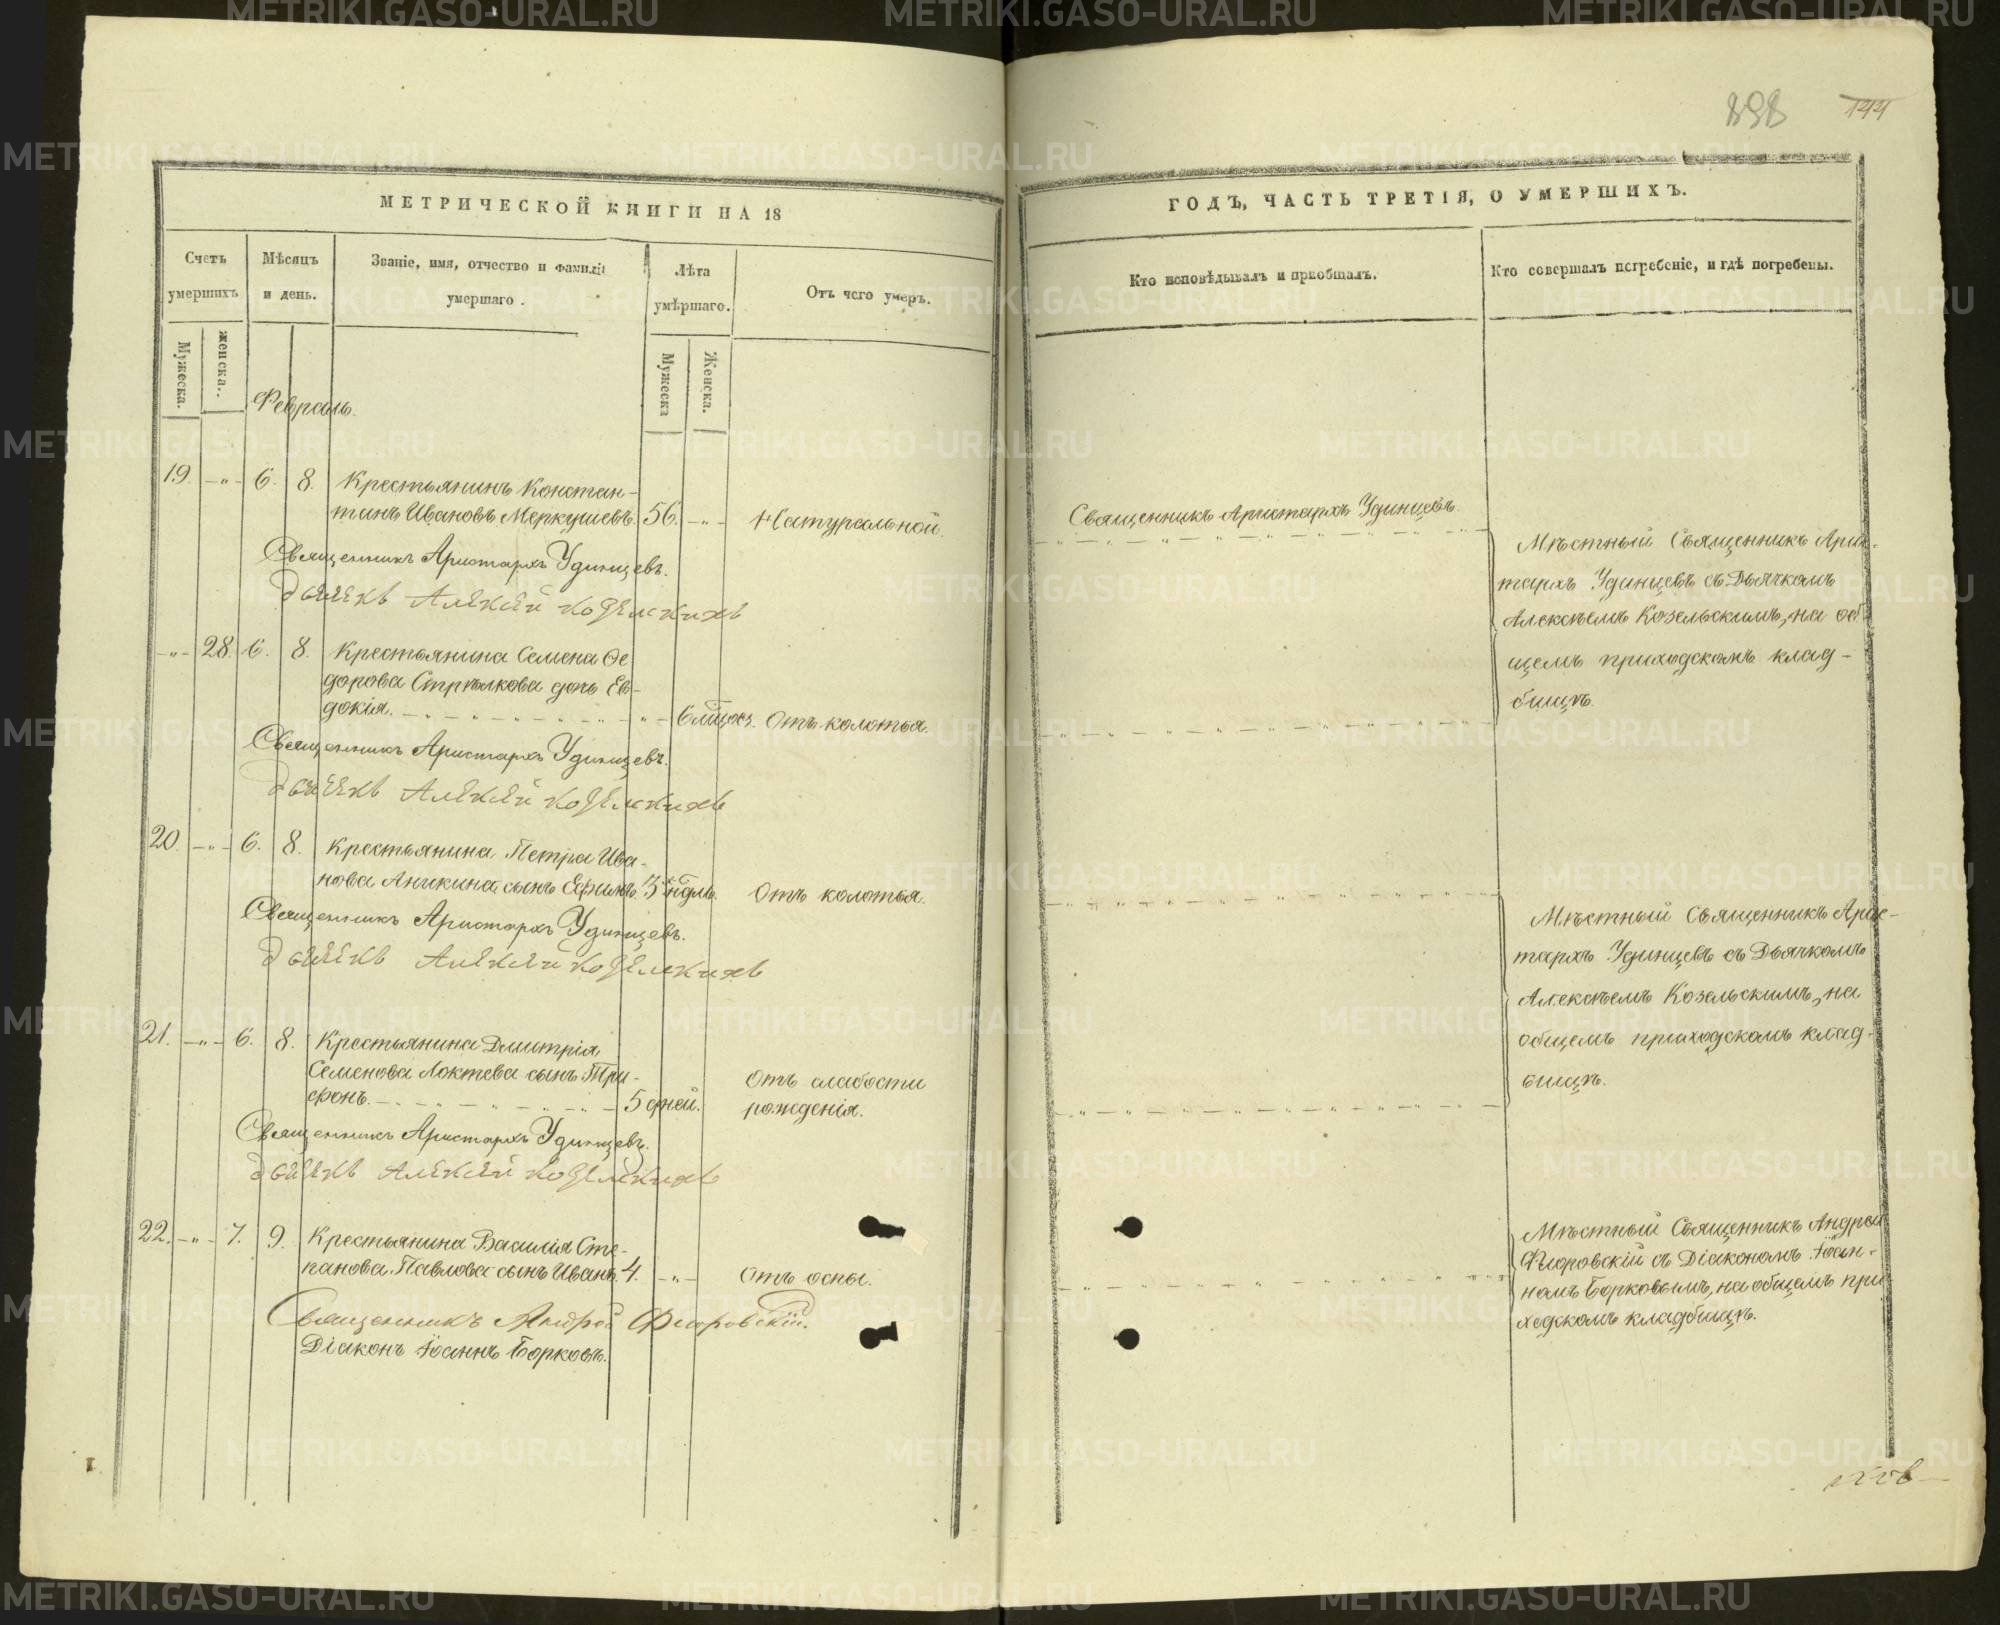 144
МЕТРИЧЕСКОЙ КНИГИ НА 18
Счетъ умершихъ
Мѣсяцъ и день.
Званіе, имя, отчество и фамилія умершаго.
Лѣта умершаго.
Отъ чего умеръ.
Мужеска.
женска.
Мужеска
Женска.
Февраль.
19. -„- 6. 8. Крестьянинъ Констан-
тинъ Ивановъ Меркушевъ. 56. -„- Натуральной.
Священникъ Аристархъ Удинцевъ.
Дьячекъ Алексѣй Козельскихъ
-„- 28. 6. 8. Крестьянина Семена Ѳе
дорова Стрѣлкова дочь Ев-
докія. 6 мѣсяц. Отъ колотья.
Священникъ Аристархъ Удинцевъ.
Дьячекъ Алексѣй Козельскихъ
20. -„- 6. 8. Крестьянина Петра Ива-
нова Аникина сынъ Ефимъ. 3 недѣль. Отъ колотья.
Священникъ Аристархъ Удинцевъ.
Дьячекъ Алексѣй Козельскихъ
21. -„- 6. 8. Крестьянина Дмитрія
Семенова Локтева сынъ Три-
фонъ. 5 дней. Отъ слабости
рожденія.
Священникъ Аристархъ Удинцевъ.
Дьячекъ Алексѣй Козельскихъ
22. -„- 7. 9. Крестьянина Василія Сте-
панова Павлова сынъ Иванъ. 4. -„- Отъ оспы.
Священникъ Андрей Флоровскій.
Діаконъ Іоаннъ Борковъ.
ГОДЪ, ЧАСТЬ ТРЕТІЯ, О УМЕРШИХЪ.
Кто исповѣдывалъ и пріобщалъ.
Кто совершалъ погребеніе, и гдѣ погребены.
Священникъ Аристархъ Удинцевъ.
Мѣстный Священникъ Арис-
тархъ Удинцевъ съ Дьячкомъ
Алексѣемъ Козельскимъ, на об-
щемъ приходскомъ клад-
бищѣ.
Мѣстный Священникъ Арис-
тархъ Удинцевъ съ Дьячкомъ
Алексѣемъ Козельскимъ, на
общемъ приходскомъ клад-
бищѣ.
Мѣстный Священникъ Андрей
Флоровскій съ Діакономъ Іоан-
номъ Борковымъ, на общемъ при
ходскомъ кладбищѣ.
METRIKI.GASO-URAL.RU